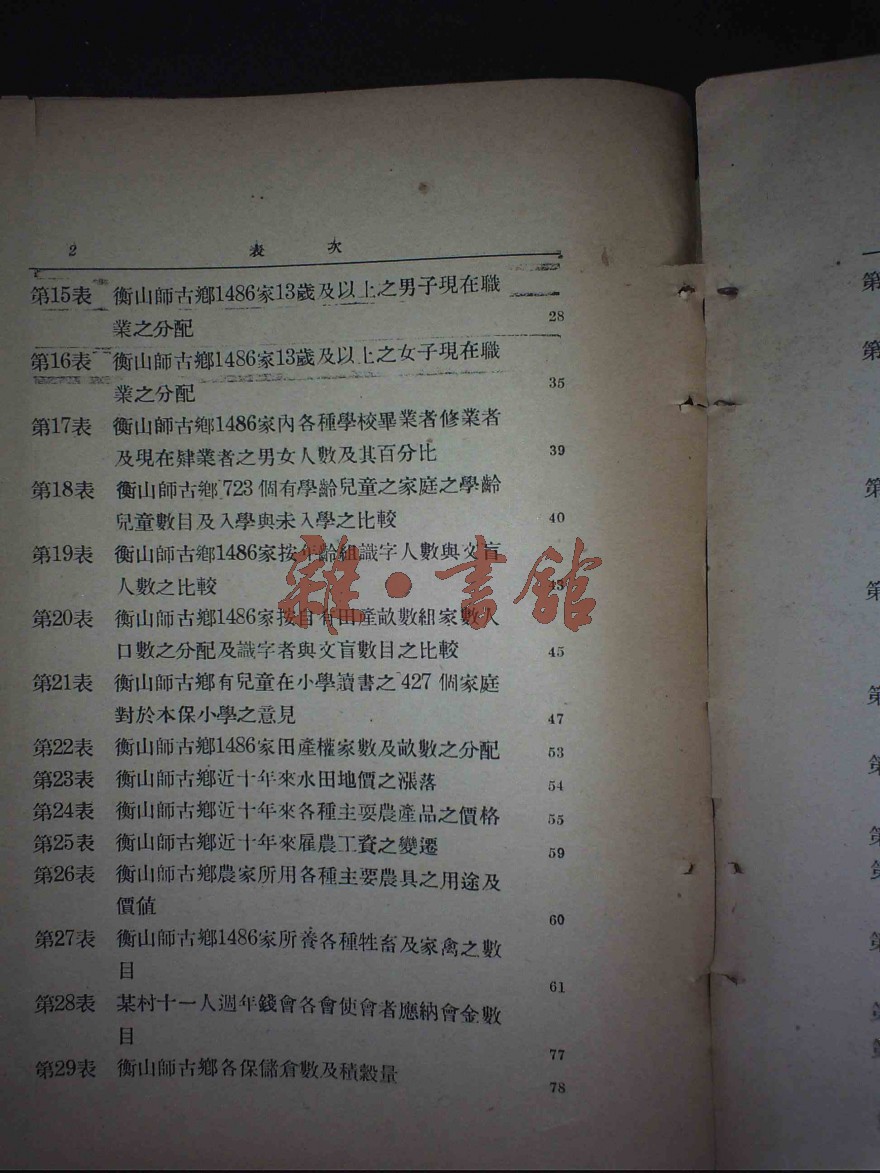 2 表次
第15表 衡山師古鄉1486家13歲及以上之男子現在職
業之分配 28
第16表 衡山師古鄉1486家13歲及以上之女子現在職
業之分配 35
第17表 衡山師古鄉1486家內各種學校畢業者修業者
及現在肄業者之男女人數及其百分比 39
第18表 衡山師古鄉723個有學齡兒童之家庭之學齡
兒童數目及入學與未入學之比較 40
第19表 衡山師古鄉1486家按年齡組識字人數與文盲
人數之比較 43
第20表 衡山師古鄉1486家按自有田產畝數組家數人
口數之分配及識字者與文盲數目之比較 45
第21表 衡山師古鄉有兒童在小學讀書之427個家庭
對於本保小學之意見 47
第22表 衡山師古鄉1486家田產權家數及畝數之分配 53
第23表 衡山師古鄉近十年來水田地價之漲落 54
第24表 衡山師古鄉近十年來各種主要農產品之價格 55
第25表 衡山師古鄉近十年來雇農工資之變遷 59
第26表 衡山師古鄉農家所用各種主要農具之用途及
價値 60
第27表 衡山師古鄉1486家所養各種牲畜及家禽之數
目 61
第28表 某村十一人週年錢會各會使會者應納會金數
目 77
第29表 衡山師古鄉各保儲倉數及積穀量 78
雜·書館
第
第
第
第
第
第
第
第
第
第
第
第